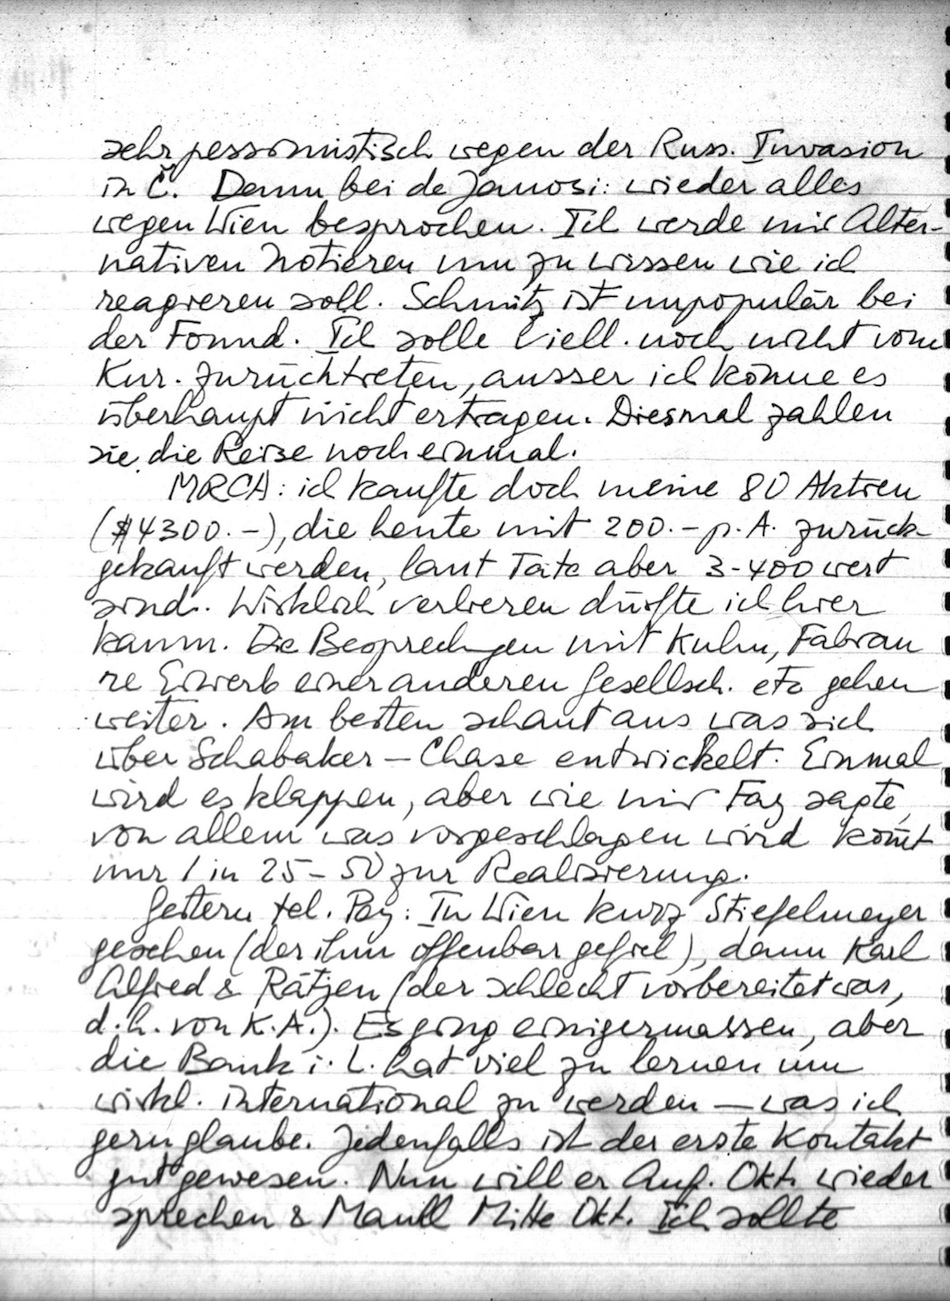 sehr pessimistisch wegen der Russ. Invasion
in Č. Dann bei de Janosi: wieder alles
wegen Wien besprochen. Ich werde mir Alter-
nativen notieren um zu wissen wie ich
reagieren soll. Schmitz ist unpopulär bei
der Found. Ich solle viell. noch nicht vom
Kur. zurücktreten, ausser ich könne es
überhaupt nicht ertragen. Diesmal zahlen
sie die Reise noch einmal.
MRCA: ich kaufte doch meine 80 Aktien
($4300.-), die heute mit 200.- p.A. zurück-
gekauft werden, laut Tate aber 3-400 wert
sind. Wirklich verlieren dürfte ich hier
kaum. Die Besprechungen mit Kuhn, Fabian
re Erwerb einer anderen Gesellsch. etc gehen
weiter. Am besten schaut aus was sich
über Schabaker – Chase entwickelt. Einmal
wird es klappen, aber wie mir Fay sagte,
von allem was vorgeschlagen wird kom̄t
nur 1 in 25-50 zur Realisierung.
Gestern tel. Pay: In Wien kurz Stiefelmeyer
gesehen (der ihm offenbar gefiel), dann Karl
Alfred & Rätzen (der schlecht vorbereitet war,
d.h. von K.A.). Es ging einigermassen, aber
die Bank i. L. hat viel zu lernen um
wirkl. international zu werden – was ich
gern glaube. Jedenfalls ist der erste Kontakt
gut gewesen. Nun will er Anf. Okt. wieder
sprechen & Mitte Okt. Ich sollte